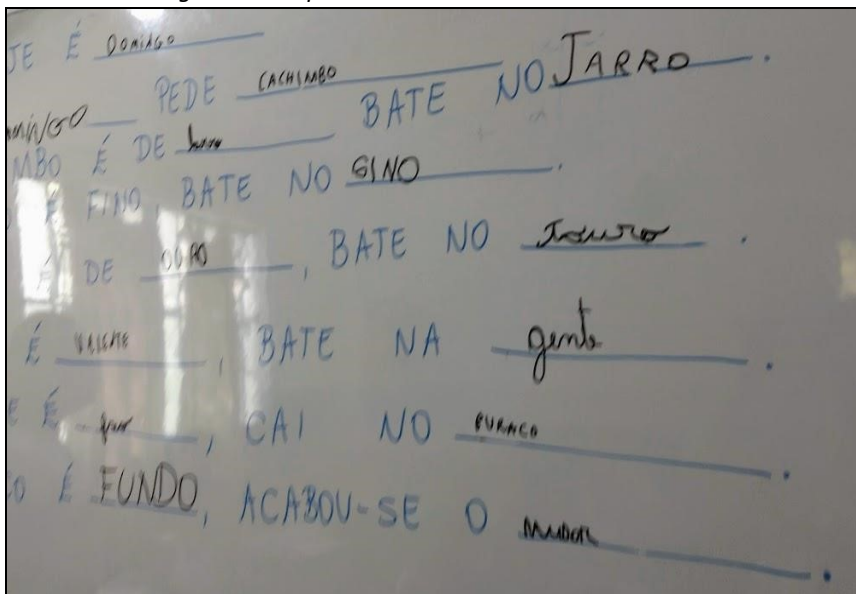 JE É DOMINGO
MINGO PEDE CACHIMBO BATE NO JARRO.
MBO É DE
É FINO, BATE NO SINO.
É DE OURO, BATE NO TOURO.
É VALENTE, BATE NA gente.
E É, CAI NO BURACO.
CO É FUNDO, ACABOU-SE O